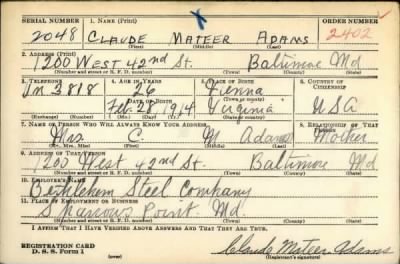 SERIAL NUMBER 1. NAME (Print) ORDER NUMBER
2048 CLAUDE MATEER ADAMS 2402
(First) (Middle) (Last)
2. ADDRESS (Print)
1200 WEST 42nd St. Baltimore Md
3. TELEPHONE 4. AGE IN YEARS 5. PLACE OF BIRTH 6. COUNTRY OF CITIZENSHIP
3818 26 Vienna
DATE OF BIRTH (Town or county)
Feb. 28 1914 Virginia USA
(Exchange) (Number) (Mo.) (Day) (Yr.) (State or country)
7. NAME OF PERSON WHO WILL ALWAYS KNOW YOUR ADDRESS 8. RELATIONSHIP OF THAT PERSON
Mrs C M Adams Mother
(Mr., Mrs., Miss) (First) (Middle) (Last)
9. ADDRESS OF THAT PERSON
1200 West 42nd St. Baltimore Md
10. EMPLOYER'S NAME
Bethlehem Steel Company
11. PLACE OF EMPLOYMENT OR BUSINESS
Sparrows Point. Md
I AFFIRM THAT I HAVE VERIFIED ABOVE ANSWERS AND THAT THEY ARE TRUE.
REGISTRATION CARD
D. S. S. Form 1 Claude Mateer Adams
(Registrant's signature)